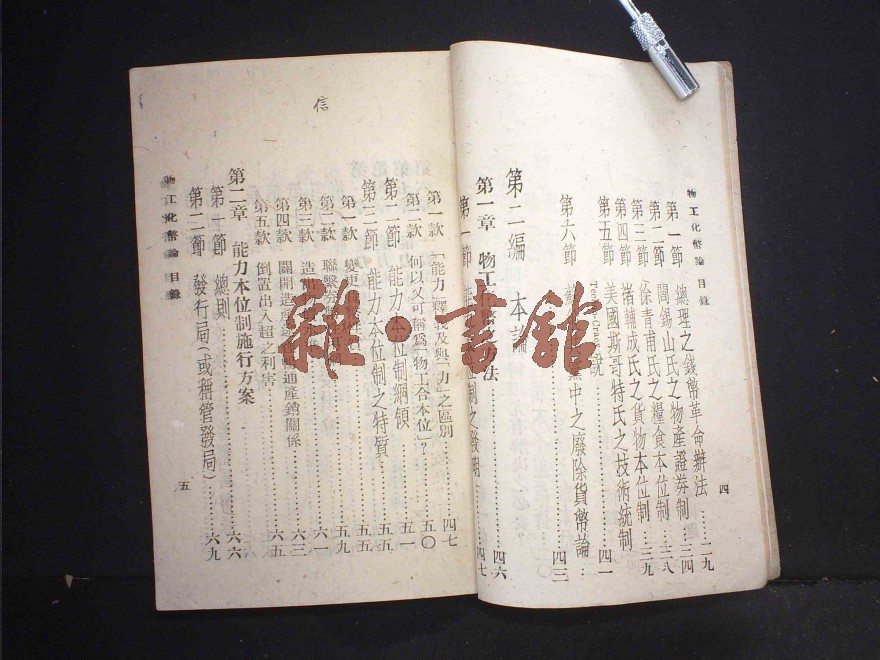 物工化幣論 目錄
四
第一節 總理之錢幣革命辦法……二九
第二節 閻錫山氏之物產證劵制…三四
第三節 徐青甫氏之糧食本位制…三八
第四節 褚輔成氏之貨物本位制…三九
第五節 美國斯哥特氏之技術統制
說……四一
第六節 中之廢除貨幣論…四三
第二編 本論
第一章 物工 法……四六
第一節 制之發明……四七
第一款 「能力」釋義及與「力」之區別……四七
第二款 何以又可稱爲「物工合本位」?……五〇
第二節 能力本位制綱領……五一
第三節 能力本位制之特質……五五
第一款 變更……五五
第二款 聯繫券……五九
第三款 造……六一
第四款 關開造 通產銷關係……六三
第五款 倒置出入超之利害……六五
第二章 能力本位制施行方案……六六
第一節 總則……六六
第二節 發行局(或稱管發局)……六九
物工化幣論 目錄
五
信
雜·書館